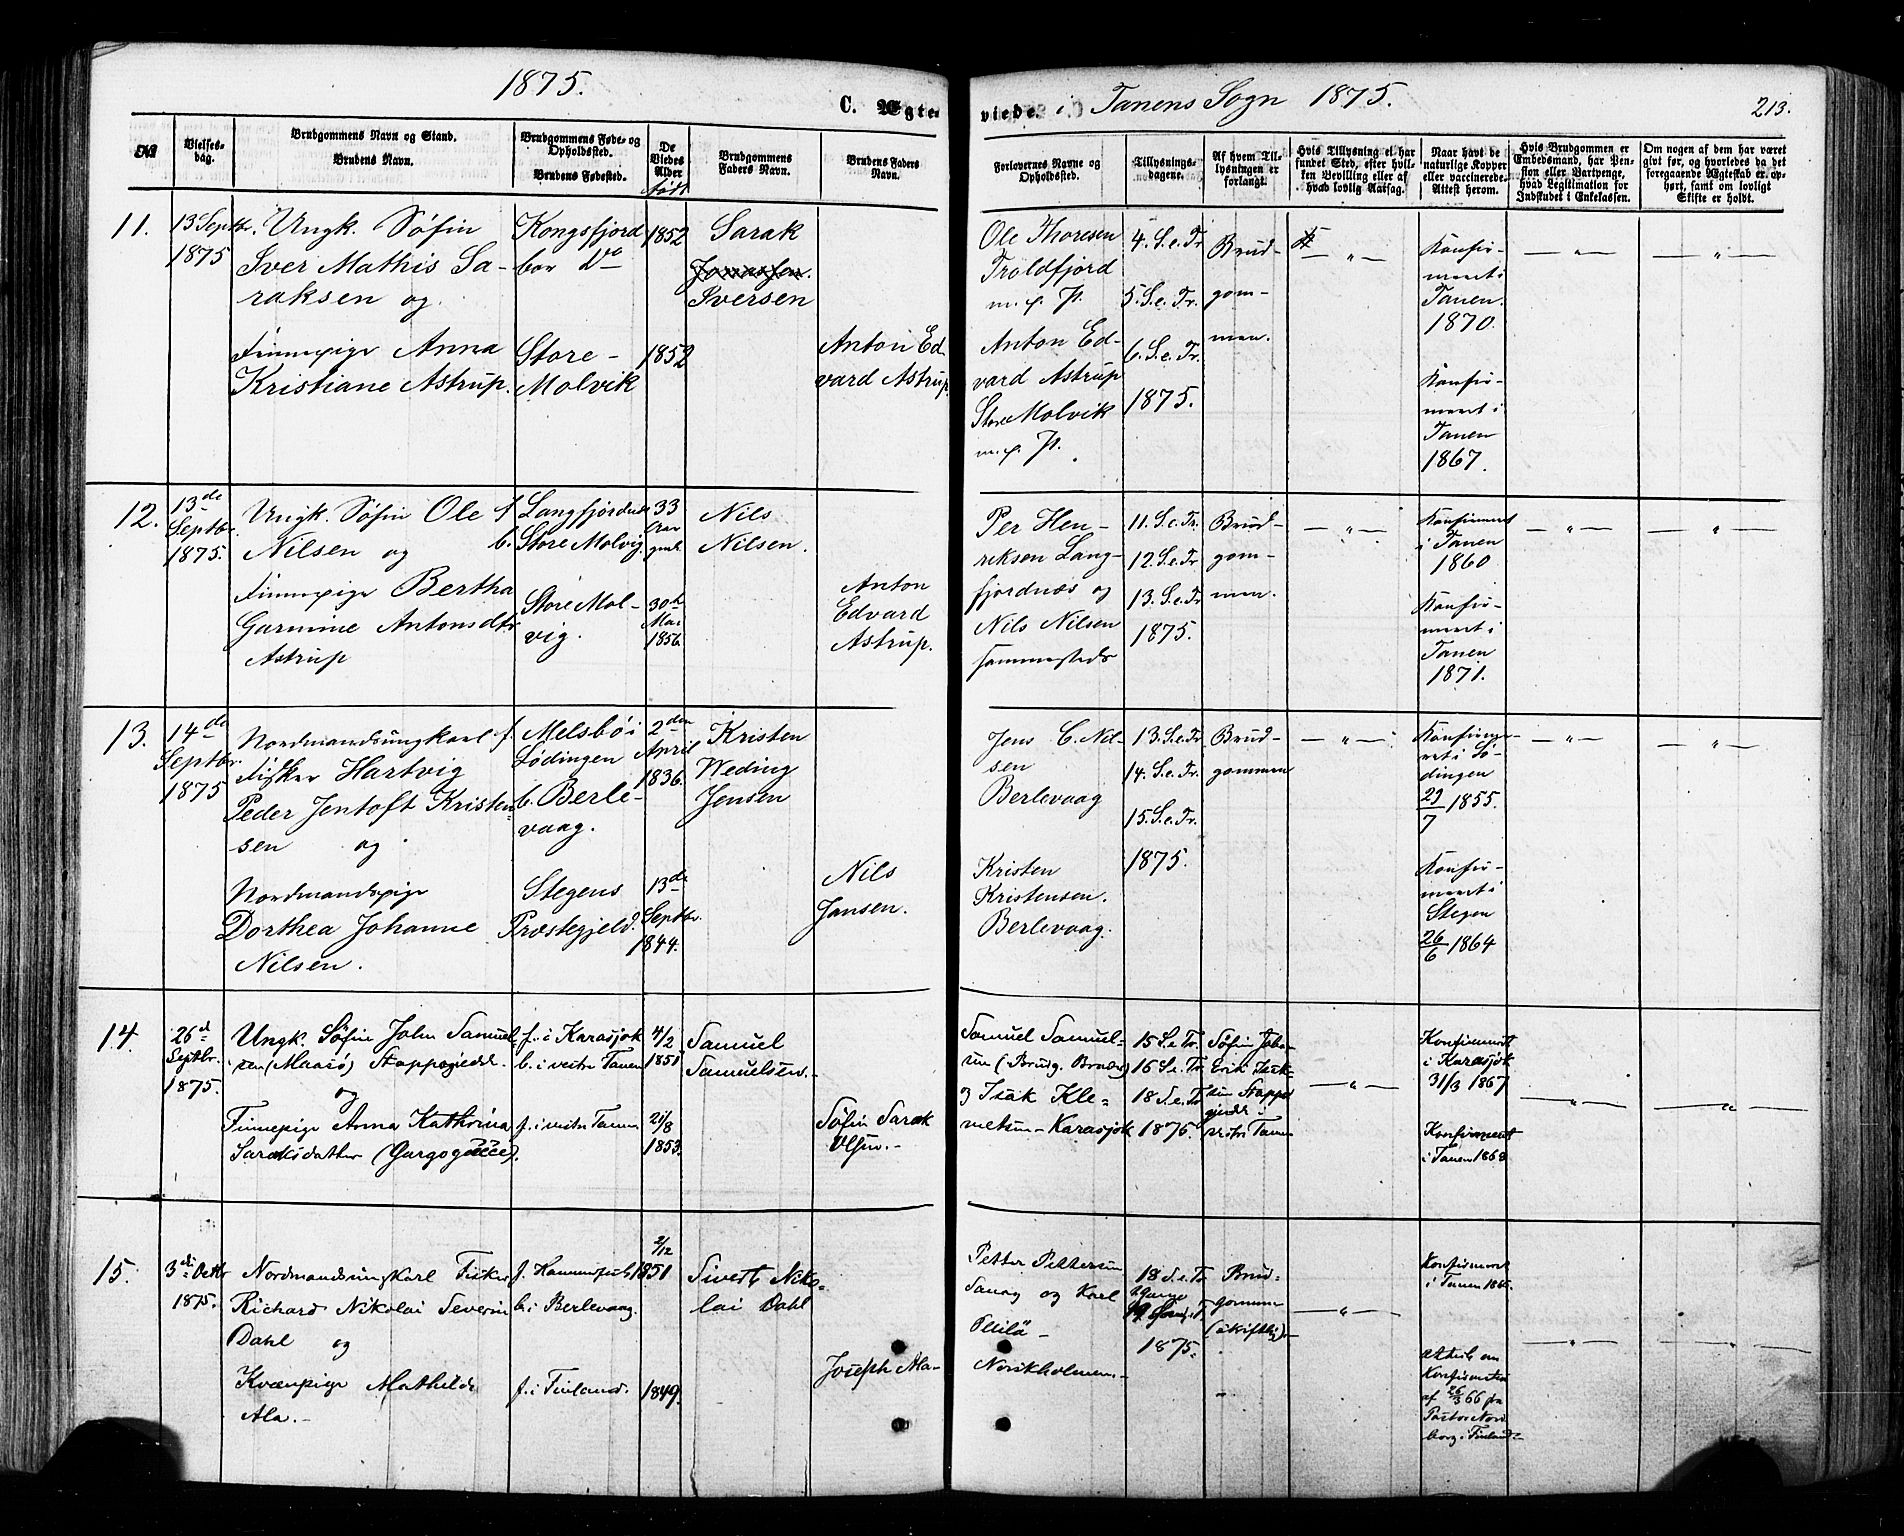 1875.
C. Ægte-
viede i Tanens Sogn 1875.
213.
No
Vielses-
dag.
Brudgommens Navn og Stand.
Brudens Navn.
Brudgommens Føde- og
Opholdssted.
Brudens Fødested.
De
Viedes
Alder
født
Brudgommens
Faders Navn.
Brudens Faders
Navn.
Forlovernes Navne og
Opholdssted.
Tillysnings-
dagene.
Af hvem Til-
lysningen er
forlangt.
Hvis Tillysning ei har
fundet Sted, efter hvil-
ken Bevilling eller af
hvad lovlig Aarsag.
Naar havt de
naturlige Kopper
eller vaccinerede.
Attest herom.
Hvis Brudgommen er
Embedsmand, har Pen-
sion eller Vartpenge,
hvad Legitimation for
Indskudet i Enkekassen.
Om nogen af dem har været
givt før, og hvorledes da det
foregaaende Ægteskab er op-
hørt, samt om lovligt
Skifte er holdt.
11.
13 Septbr.
1875
Ungk. Søfin
Iver Mathis Sa-
raksen og
Finnepige Anna
Kristiane Astrup.
Kongsfjord
bor do
Store-
Molvik
1852
1852
Sarak
Jonassen.
Iversen
Anton Ed-
vard Astrup
Ole Thoresen
Troldfjord
m. p. P.
Anton Ed-
vard Astrup
Store Molvik
m. p. P.
4. S. e. Tr
5. S. e. Tr.
6. S. e. Tr.
1875.
Brud-
gom-
men.
— " —
Konfir-
meret i
Tanen.
1870.
Konfir-
meret i
Tanen
1867.
— " —
— " —
12.
13de
Septbr.
1875.
Ungk. Søfin Ole
Nilsen og
Finnepige Bertha
Garmine Antonsdtr
Astrup
f. Langfjordnæs
b. Store Molvig
Store Mol-
vig.
33
Aar
gml.
30te
Mai
1856
Nils
Nilsen.
Anton
Edvard
Astrup.
Per Hen-
riksen Lang-
fjordnæs og
Nils Nilsen
sammesteds
11. S. e. Tr.
12. S. e. Tr
13. S. e. Tr
1875.
Brud-
gom-
men.
— " —
Konfirmeret
i Tanen
1860
Konfir-
meret i
Tanen
1871.
— " —
— " —
13.
14de
Septbr.
1875
Nordmandsungkarl
Fisker Hartvig
Peder Jentoft Kristen-
sen og
Nordmandspige
Dorthea Johanne
Nilsen.
f. Melsbø i
Lødingen
b. Berle-
vaag.
Stegens
Præstegjeld.
2den
April
1836.
13de
Septbr.
1844.
Kristen
Weding
Jensen
Nils
Jansen.
Jens C. Nil-
sen
Berlevaag
Kristen
Kristensen.
Berlevaag.
13. S. e. Tr
14. S. e. Tr.
15. S. e. Tr.
1875.
Brud-
gommen
— " —
Konfirme-
ret i Lø-
dingen
29/7 1855.
Konfir-
meret i
Stegen
26/6 1864
— " —
— " —
14.
26d
Septbr.
1875.
Ungk. Søfin John Samuel-
sen (Maasø) Stappogiedde
og
Finnepige Anna Kathrina
Saraksdatter (Gargogiecce).
f. i Karasjok
b. i vestre Tanen
f. i vestre Tanen
4/2
1851
21/8
1853.
Samuel
Samuelsen.-
Søfin Sarak
Olsen.-
Samuel Samuel-
sen (Brudg. Broder)
og Isak Kle-
metsen-Karasjok
15 S. e. Tr.
16 S. e. Tr
18 S. e. Tr
1875.
Søfin Joha-
Erik Isak-
sen Stappo
giedde i
vestre Tanen
— " —
Konfirmeret
i Karasjok
31/3 1867
Konfirmeret
i Tanen 1868
— " —
— " —
15.
3die Octbr
1875.
Nordmandsungkarl Fisker
Richard Nikolai Severin
Dahl og
Kvænpige Mathilde
Ala.-
f. Hammerfest
b. i Berlevaag.
f. i Finland.
2/12
1851
1849.
Sivert Niko-
lai Dahl
Joseph Ala-
Petter Pettersen
Tanay og Karl
Pleilä-
Norskholmen.-
18 S. e. Tr
2 Gange
1875.
Brud-
gommen
(skriftlig)-
— " —
Konfirmeret
i Tanen 1865.
Attest om
Konfirmation
af 26/3 66 fra
Pastor Nord-
berg i Finland-
— " —
— " —